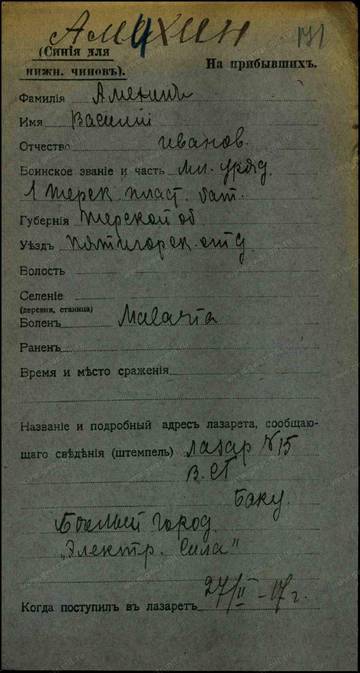 Амихин
4
131
(Синія для
нижн. чиновъ).
На прибывшихъ.
Фамилія Аменинъ
Имя Василій
Отчество Иванов.
Воинское званіе и часть Мл. уряд.
1 Терек. пласт. бат.
Губернія Терской об
Уѣздъ Пятигорск. отд
Волость
Селеніе
(деревня, станица)
Боленъ Malaria
Раненъ
Время и мѣсто сраженія
Названіе и подробный адресъ лазарета, сообщаю-
щаго свѣдѣнія (штемпель) Лазар №15
В.С.Г.
Баку.
Бѣлый город.
„Электр. Сила"
Когда поступилъ въ лазаретъ 27/II - 17 г.